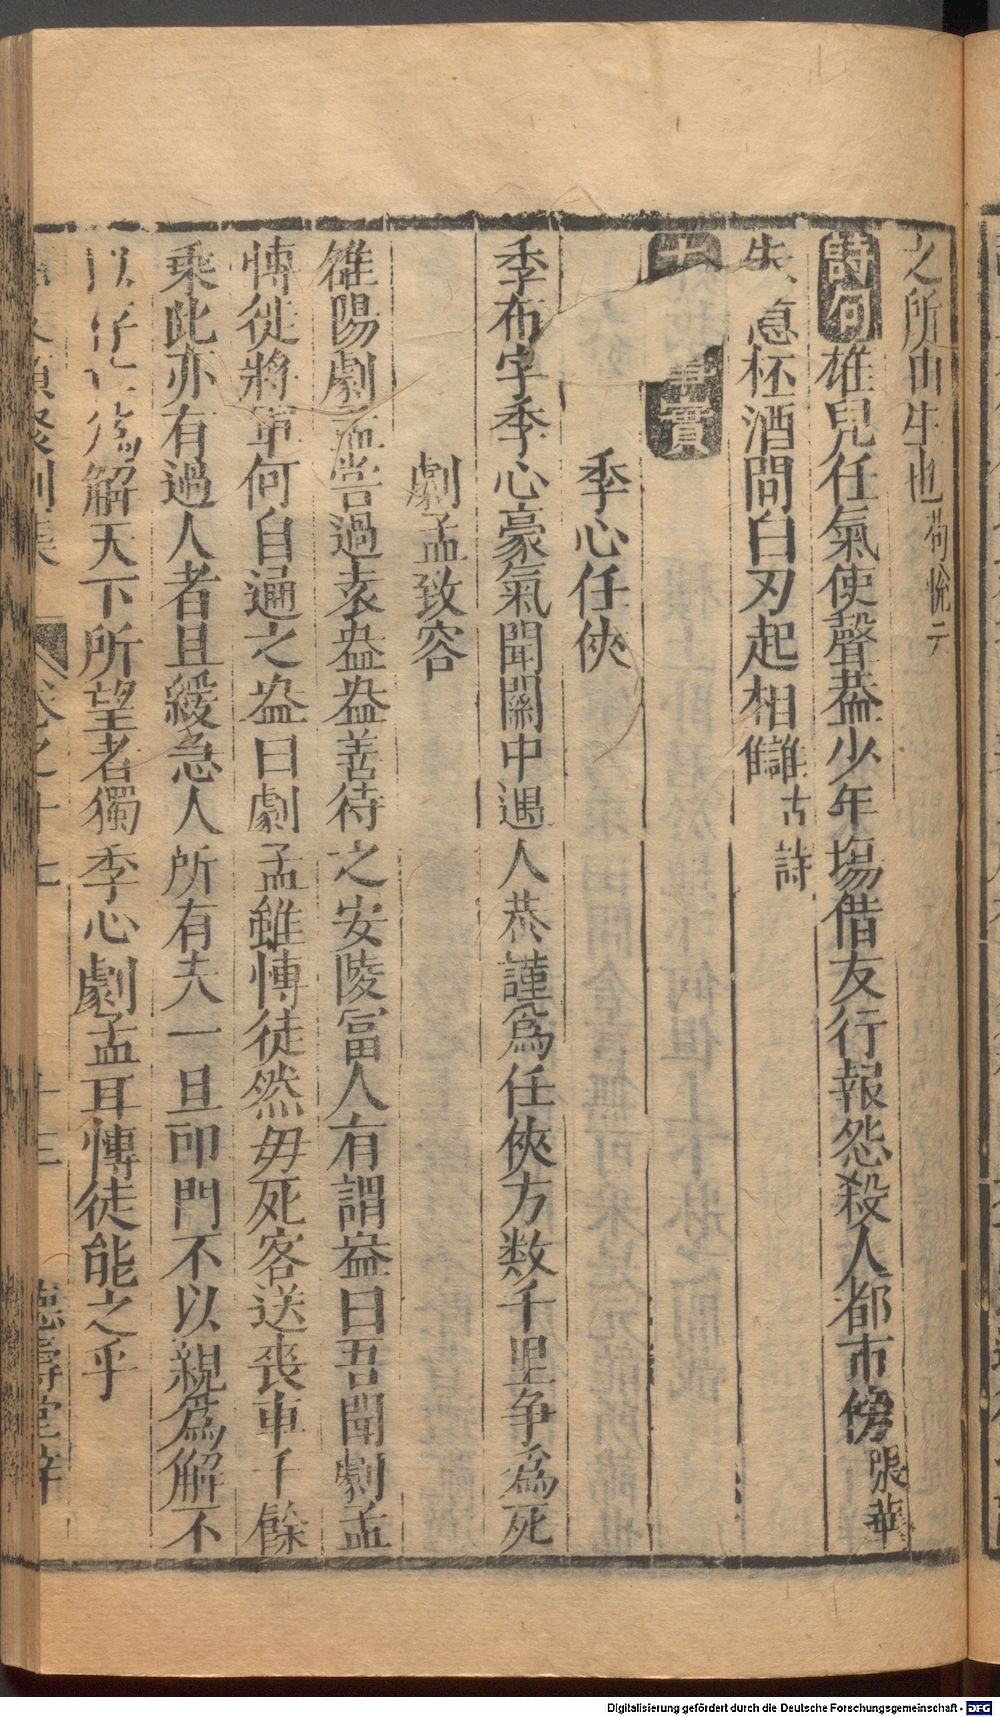 之所由生也荀悅云
詩句雄兒任氣使聲葢少年塲借友行報怨殺人都市傍張華
失意杯酒間白刃起相讎古詩
古今事實
季心任俠
季布字季心豪氣聞關中遇人恭謹爲任俠方数千里争爲死
劇孟致客
雒陽劇孟嘗過袁盎盎善待之安陵冨人有謂盎曰吾聞劇孟
愽徒將軍何自通之盎曰劇孟雖愽徒然毋死客送喪車千餘
乘此亦有過人者且緩急人所有夫一旦叩門不以親爲解不
以存亡爲解天下所望者獨季心劇孟耳愽徒能之乎
卷之十七 十三 德壽堂梓
Digitalisierung gefördert durch die Deutsche Forschungsgemeinschaft - DFG